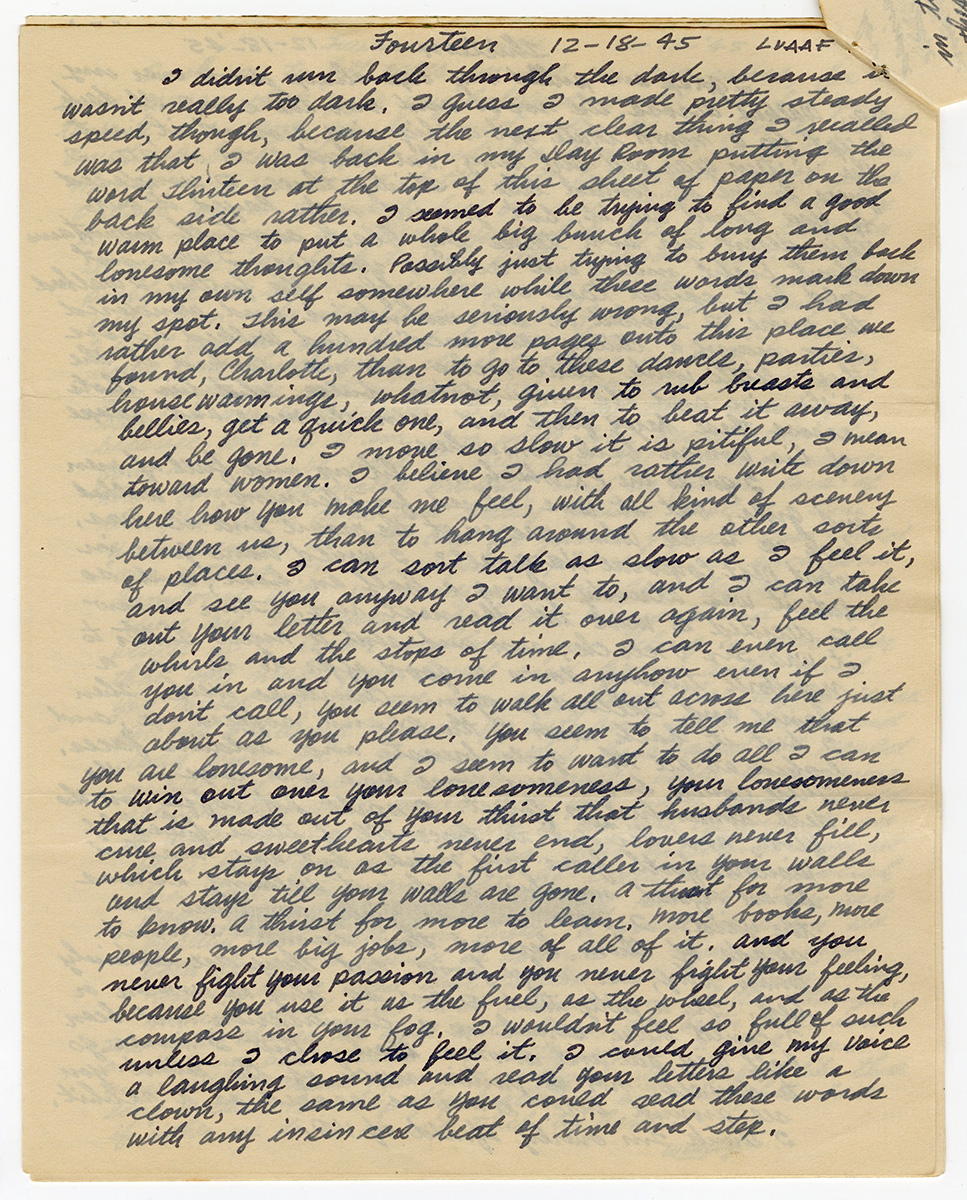 Fourteen 12-18-45 LVAAF
I didn't run back through the dark, because it
wasn't really too dark. I guess I made pretty steady
speed, though, because the next clear thing I recalled
was that I was back in my Day Room putting the
word Thirteen at the top of this sheet of paper on the
back side rather. I seemed to be trying to find a good
warm place to put a whole big bunch of long and
lonesome thoughts. Possibly just trying to bury them back
in my own self somewhere while these words mark down
my spot. This may be seriously wrong, but I had
rather add a hundred more pages onto this place we
found, Charlotte, than to go to these dances, parties,
housewarmings, whatnot, given to rub breasts and
bellies, get a quick one, and then to beat it away,
and be gone. I move so slow it is pitiful, I mean
toward women. I believe I had rather write down
here how you make me feel, with all kind of scenery
between us, than to hang around the other sorts
of places. I can sort talk as slow as I feel it,
and see you anyway I want to, and I can take
out your letter and read it over again, feel the
whirls and the stops of time. I can even call
you in and you come in anyhow even if I
don't call, you seem to walk all out across here just
about as you please. You seem to tell me that
you are lonesome, and I seem to want to do all I can
to win out over your lonesomeness, your lonesomeness
that is made out of your thirst that husbands never
cure and sweethearts never end, lovers never fill,
which stays on as the first caller in your walls
and stays till your walls are gone. A thirst for more
to know. A thirst for more to learn. More books, more
people, more big jobs, more of all of it. And you
never fight your passion and you never fight your feeling,
because you use it as the fuel, as the wheel, and as the
compass in your fog. I wouldn't feel so full of such
unless I chose to feel it. I could give my voice
a laughing sound and read your letters like a
clown, the same as you could read these words
with any insincer beat of time and step.
in